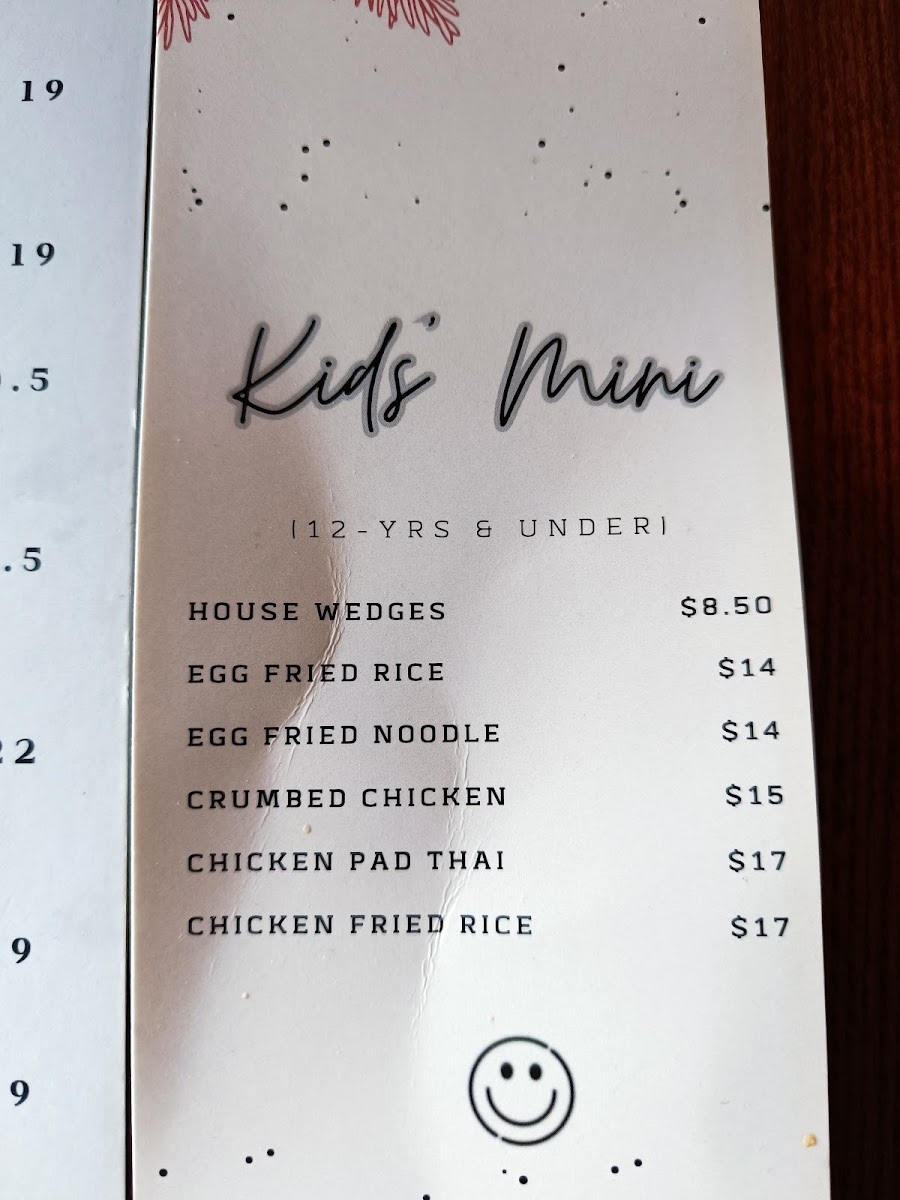 19
19
.5
.5
22
9
9
Kids' Mini
(12-YRS & UNDER)
HOUSE WEDGES $8.50
EGG FRIED RICE $14
EGG FRIED NOODLE $14
CRUMBED CHICKEN $15
CHICKEN PAD THAI $17
CHICKEN FRIED RICE $17